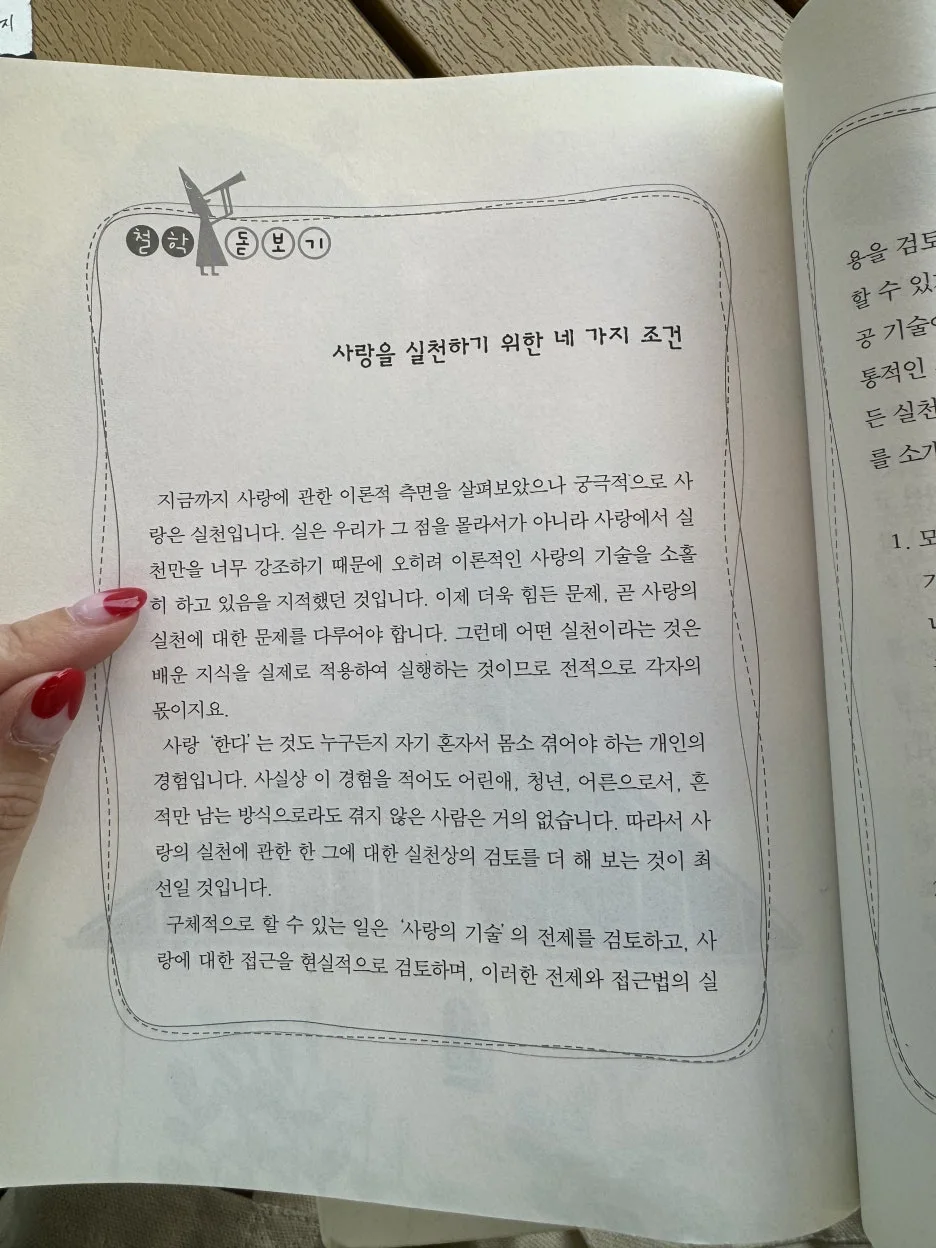 지
철학 돋보기
사랑을 실천하기 위한 네 가지 조건
지금까지 사랑에 관한 이론적 측면을 살펴보았으나 궁극적으로 사
랑은 실천입니다. 실은 우리가 그 점을 몰라서가 아니라 사랑에서 실
천만을 너무 강조하기 때문에 오히려 이론적인 사랑의 기술을 소홀
히 하고 있음을 지적했던 것입니다. 이제 더욱 힘든 문제, 곧 사랑의
실천에 대한 문제를 다루어야 합니다. 그런데 어떤 실천이라는 것은
배운 지식을 실제로 적용하여 실행하는 것이므로 전적으로 각자의
몫이지요.
사랑 ‘한다’는 것도 누구든지 자기 혼자서 몸소 겪어야 하는 개인의
경험입니다. 사실상 이 경험을 적어도 어린애, 청년, 어른으로서, 흔
적만 남는 방식으로라도 겪지 않은 사람은 거의 없습니다. 따라서 사
랑의 실천에 관한 한 그에 대한 실천상의 검토를 더 해 보는 것이 최
선일 것입니다.
구체적으로 할 수 있는 일은 ‘사랑의 기술’의 전제를 검토하고, 사
랑에 대한 접근을 현실적으로 검토하며, 이러한 전제와 접근법의 실
용을 검토
할 수 있
공 기술
통적인
든 실천
를 소개
1. 모